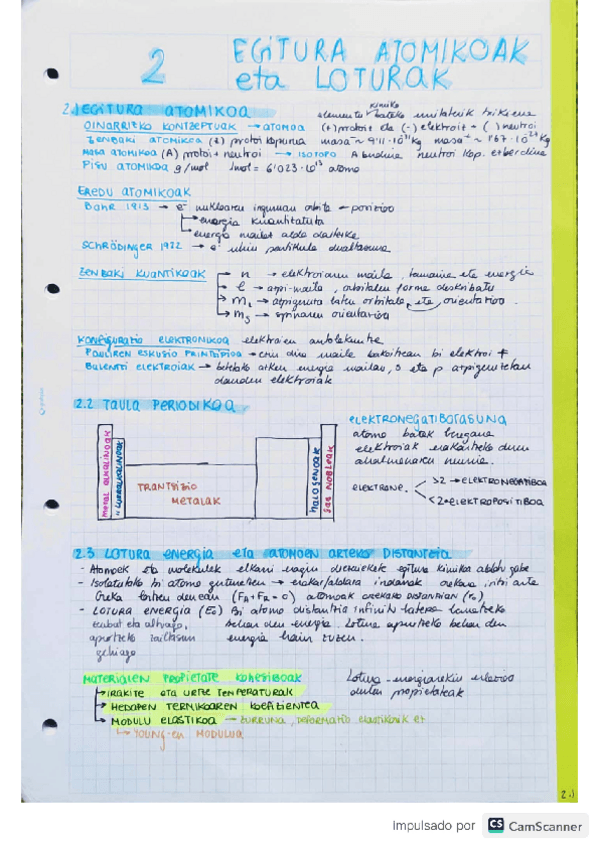 2
EGITURA ATOMIKOAK
eta LOTURAK
2.1 EGITURA ATOMIKOA
kimiko
elementu bateko unitaterik txikiena
OINARRIZKO KONTZEPTUAK → ATOMOA (+) protoi eta (-) elektroi + ( ) neutroi
ZENBAKI ATOMIKOA (Z) protoi kopurua masa ~ 9'11·10 kg masa ~ 1'67·10 kg
MASA ATOMIKOA (A) protoi + neutroi → ISOTOPO A berdina neutroi kop. ezberdina
PISU ATOMIKOA g/mol 1mol = 6'023·10 atomo
EREDU ATOMIKOAK
BOHR 1913 → e⁻ nukleoaren inguruan orbita - posizio
→ energia kuantifikatuta
→ energia mailaz alda daiteke
SCHRÖDINGER 1922 → e⁻ uhin partikula dualtasuna
ZENBAKI KUANTIKOAK → n → elektroiaren maila, tamaina eta energia
→ l → azpi-maila, orbitalen forma deskribatu
→ m → azpigeruza bateko orbitala, eta, orientazioa.
→ ms → spinaren orientazioa
KONFIGURAZIO ELEKTRONIKOA elektroien antolakuntza
PAULIREN ESKUSIO PRINTZIPIOA → ezin dira maila bakoitzean bi elektroi +
BALENTZI ELEKTROIAK → beteko azken energia mailan, s eta p azpigeruzetan
dauden elektroiak
2.2 TAULA PERIODIKOA
METAL ALKALINOAK
" LURRALKALINOAK
TRANTSIZIO
METALAK
HALOGENOAK
GAS NOBLEAK
ELEKTRONEGATIBOTASUNA
atomo batek beregana
elektroiak erakartzeko duen
ahalmenaren neurria.
ELEKTRONE. >2 → ELEKTRONEGATIBOA
<2 → ELEKTROPOSITIBOA
2.3 LOTURA ENERGIA eta ATOMOEN ARTEKO DISTANTZIA
- Atomoek eta molekulek elkarri eragin diezaiekete egitura kimikoa aldatu gabe
- Isolatutako bi atomo gerturatzen → erakar/aldara indarrak oreka iritsi arte
Oreka lortzen denean (FA + FR = 0) atomoak orekako distantzian (r₀)
- LOTURA ENERGIA (E₀) Bi atomo distantzia infinitu batera banatzeko
behar den energia. Lotura apurtzeko behar den
energia hain zuzen.
zenbat eta altuago,
apurtzeko zailtasun
gehiago
MATERIALEN PROPIETATE KOHESIBOAK
Lotura-energiarekin erlazioa
duten propietateak
→ IRAKITE ETA URTZE TENPERATURAK
→ HEDAPEN TERMIKOAREN KOEFIZIENTEA
→ MODULU ELASTIKOA → ZURRUNA, DEFORMAZIO ELASTIKORIK EZ
↳ YOUNG-EN MODULUA
2.1
Impulsado por CS CamScanner